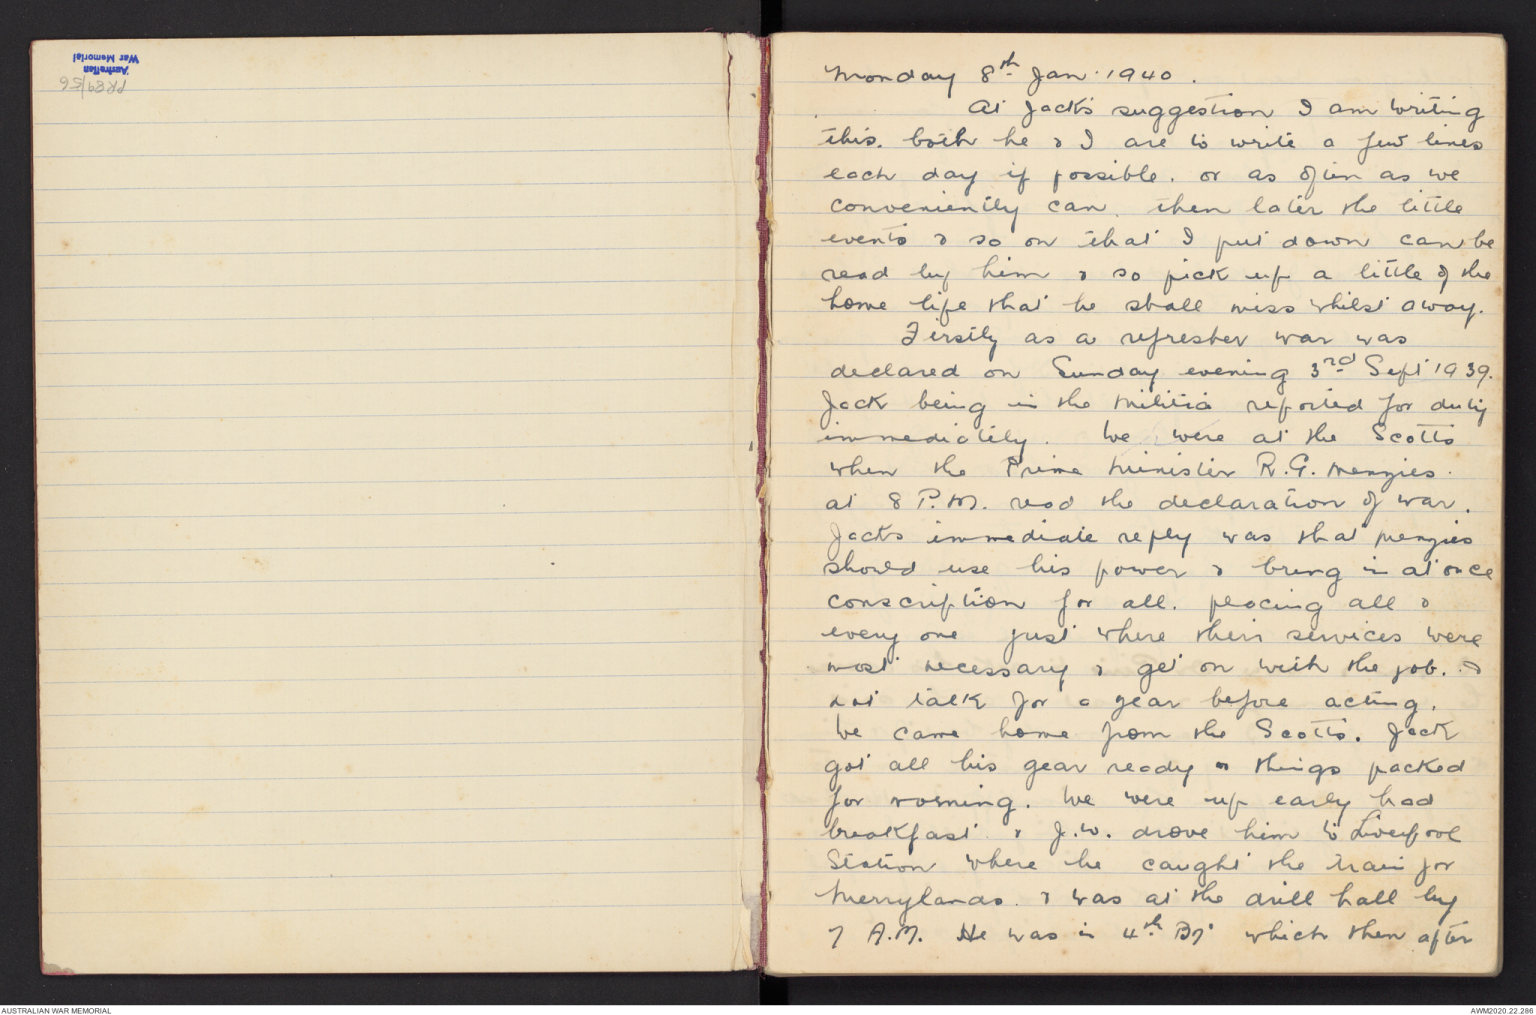 Australian
War Memorial
PR89/56
Monday 8th Jan. 1940.
At Jack's suggestion I am writing
this. both he & I are to write a few lines
each day if possible. or as often as we
conveniently can. then later the little
events & so on that I put down can be
read by him & so pick up a little of the
home life that he shall miss whilst away.
Firstly as a refresher war was
declared on Sunday evening 3rd Sept 1939.
Jack being in the Militia reported for duty
immediately. We were at the Scotts
when the Prime Minister R.G. Menzies.
at 8 P.M. read the declaration of war.
Jacks immediate reply was that Menzies
should use his power & bring in at once
conscription for all. placing all &
every one just where their services were
most necessary & get on with the job. &
not talk for a year before acting.
We came home from the Scotts. Jack
got all his gear ready & things packed
for morning. We were up early had
breakfast & J.W. drove him to Liverpool
Station where he caught the train for
Merrylands. & was at the drill hall by
7 A.M. He was in 4th Bn which then after
AUSTRALIAN WAR MEMORIAL
AWM2020.22.286